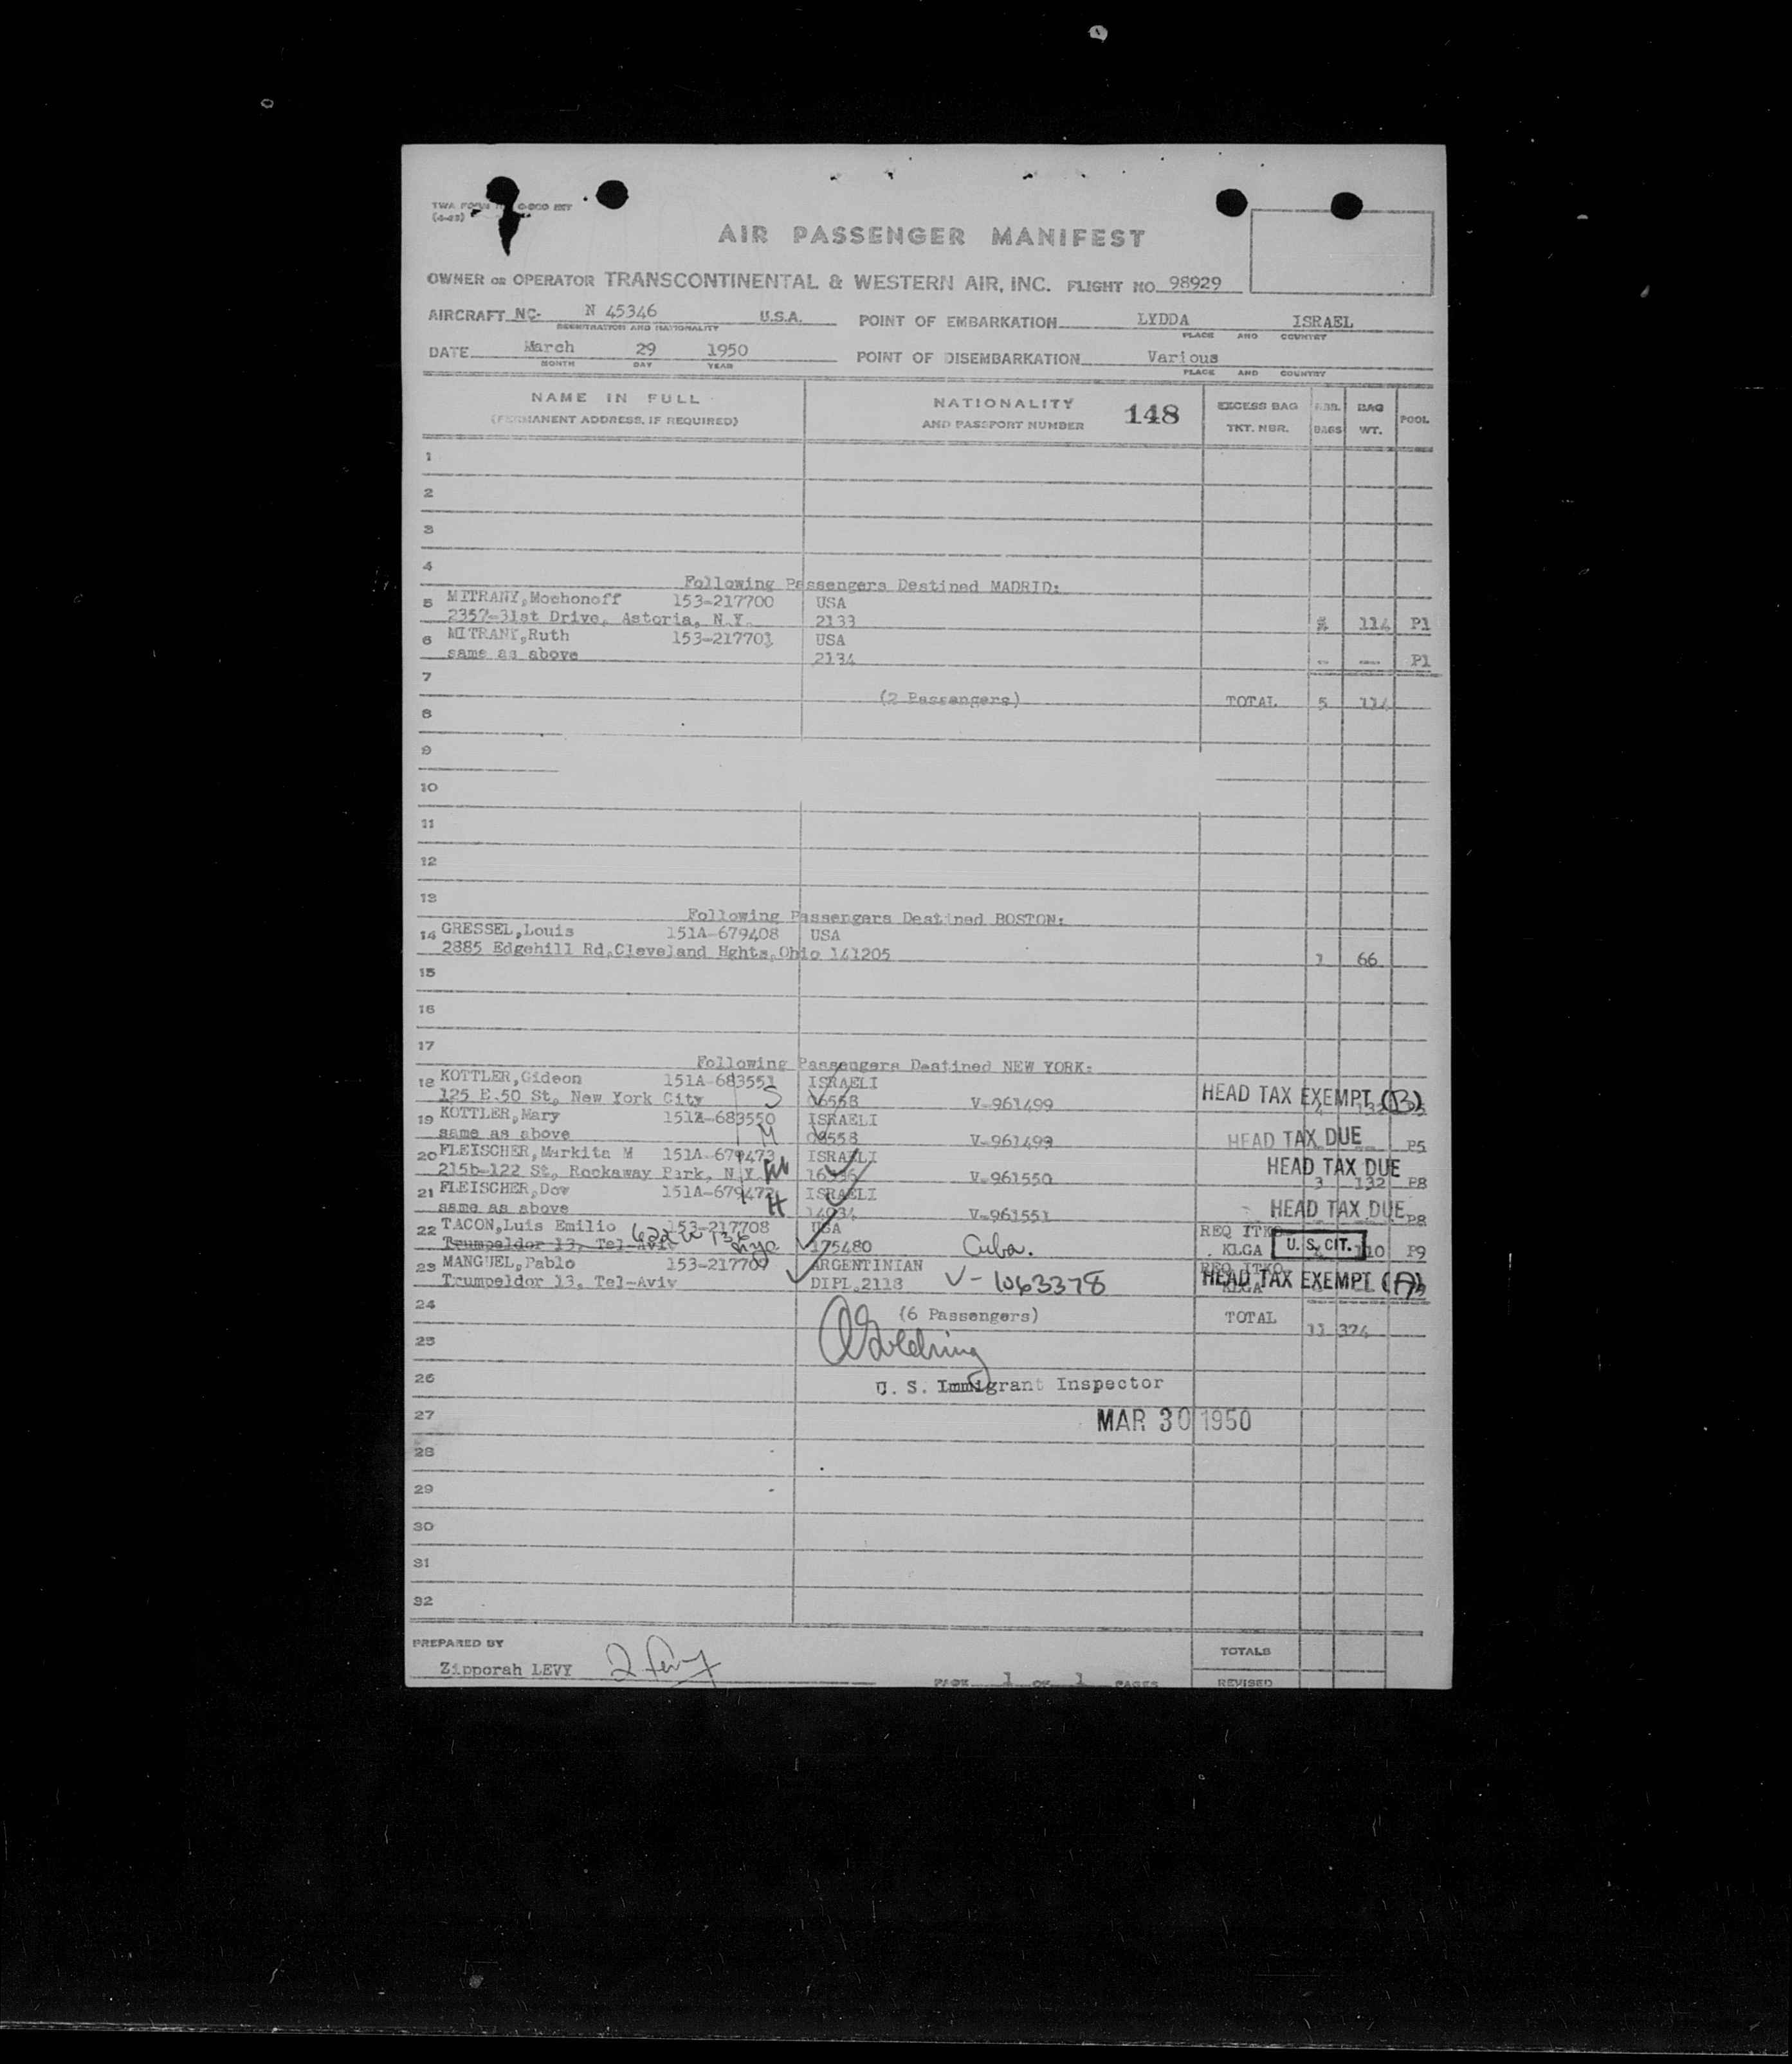 TWA FORM
(4-48)
AIR PASSENGER MANIFEST
OWNER OR OPERATOR TRANSCONTINENTAL & WESTERN AIR, INC. FLIGHT NO. 98929
AIRCRAFT NC- N 45346 U.S.A. POINT OF EMBARKATION LYDDA ISRAEL
REGISTRATION AND NATIONALITY PLACE AND COUNTRY
DATE March 29 1950 POINT OF DISEMBARKATION Various
MONTH DAY YEAR PLACE AND COUNTRY
NAME IN FULL NATIONALITY 148 EXCESS BAG NBR. BAG POOL
(PERMANENT ADDRESS, IF REQUIRED) AND PASSPORT NUMBER TKT. NBR. BAGS WT.
1
2
3
4
Following Passengers Destined MADRID:
5 MITRANY,Mochonoff 153-217700 USA
2357-31st Drive, Astoria, N.Y. 2133 114 P1
6 MITRANY,Ruth 153-217701 USA
same as above 2134 -- ---- P1
7
(2 Passengers) TOTAL 5 114
8
9
10
11
12
13
Following Passengers Destined BOSTON:
14 GRESSEL,Louis 151A-679408 USA
2885 Edgehill Rd,Cleveland Hghts,Ohio 141205 1 66
15
16
17
Following Passengers Destined NEW YORK:
18 KOTTLER,Gideon 151A-683551 ISRAELI
125 E.50 St, New York City S 06558 V-961499 HEAD TAX EXEMPT (B)
19 KOTTLER,Mary 151A-683550 ISRAELI
same as above M 08558 V-961499 HEAD TAX DUE P5
20 FLEISCHER,Markita M 151A-679473 ISRAELI HEAD TAX DUE
215b-122 St, Rockaway Park, N.Y. M V-961550 3 132 P8
21 FLEISCHER,Dov 151A-679472 ISRAELI
same as above H 14934 V-961551 HEAD TAX DUE P8
22 TACON,Luis Emilio 153-217708 USA REQ ITKO
Trumpeldor 13, Tel-Aviv 175480 Cuba. KLGA U. S. CIT. 110 P9
23 MANGUEL,Pablo 153-217709 ARGENTINIAN REQ ITKO
Trumpeldor 13, Tel-Aviv DIPL.2118 V-1063378 HEAD TAX EXEMPT (A)
KLGA
24 (6 Passengers) TOTAL 11 374
25
26 U. S. Immigrant Inspector
27 MAR 30 1950
28
29
30
31
32
PREPARED BY TOTALS
Zipporah LEVY Z Levy
PAGE 1 OF 1 PAGES REVISED